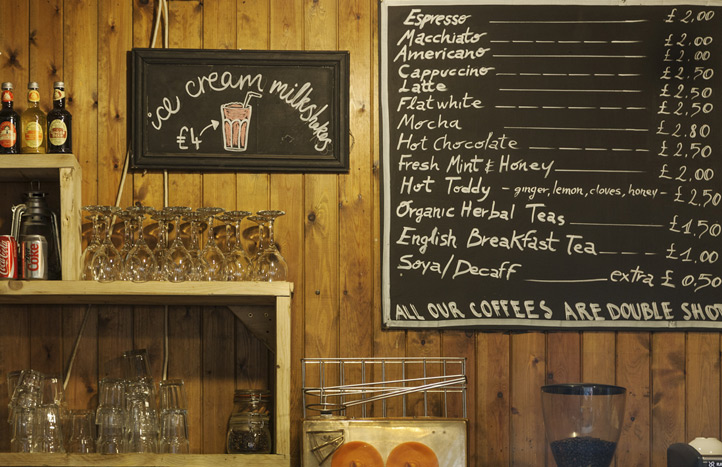 ice cream milkshakes
£4
Espresso £2,00
Macchiato £2.00
Americano £2.00
Cappuccino £2.50
Latte £2.50
Flat white £2,50
Mocha £2.80
Hot Chocolate £2,50
Fresh Mint & Honey £2.00
Hot Toddy - ginger, lemon, cloves, honey - £2,50
Organic Herbal Teas £1,50
English Breakfast Tea £1.00
Soya/Decaff extra £0,50
ALL OUR COFFEES ARE DOUBLE SHOT
Coke